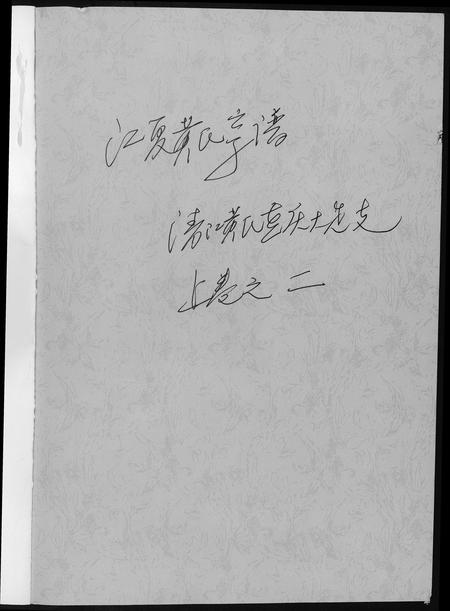 江夏黄氏宗谱
清江黄氏直庆大房支
上卷之二